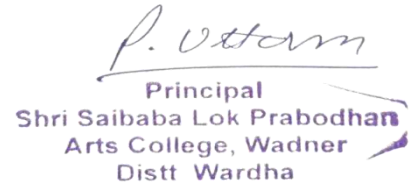 P. Uttam
Principal
Shri Saibaba Lok Prabodhan
Arts College, Wadner
Distt Wardha